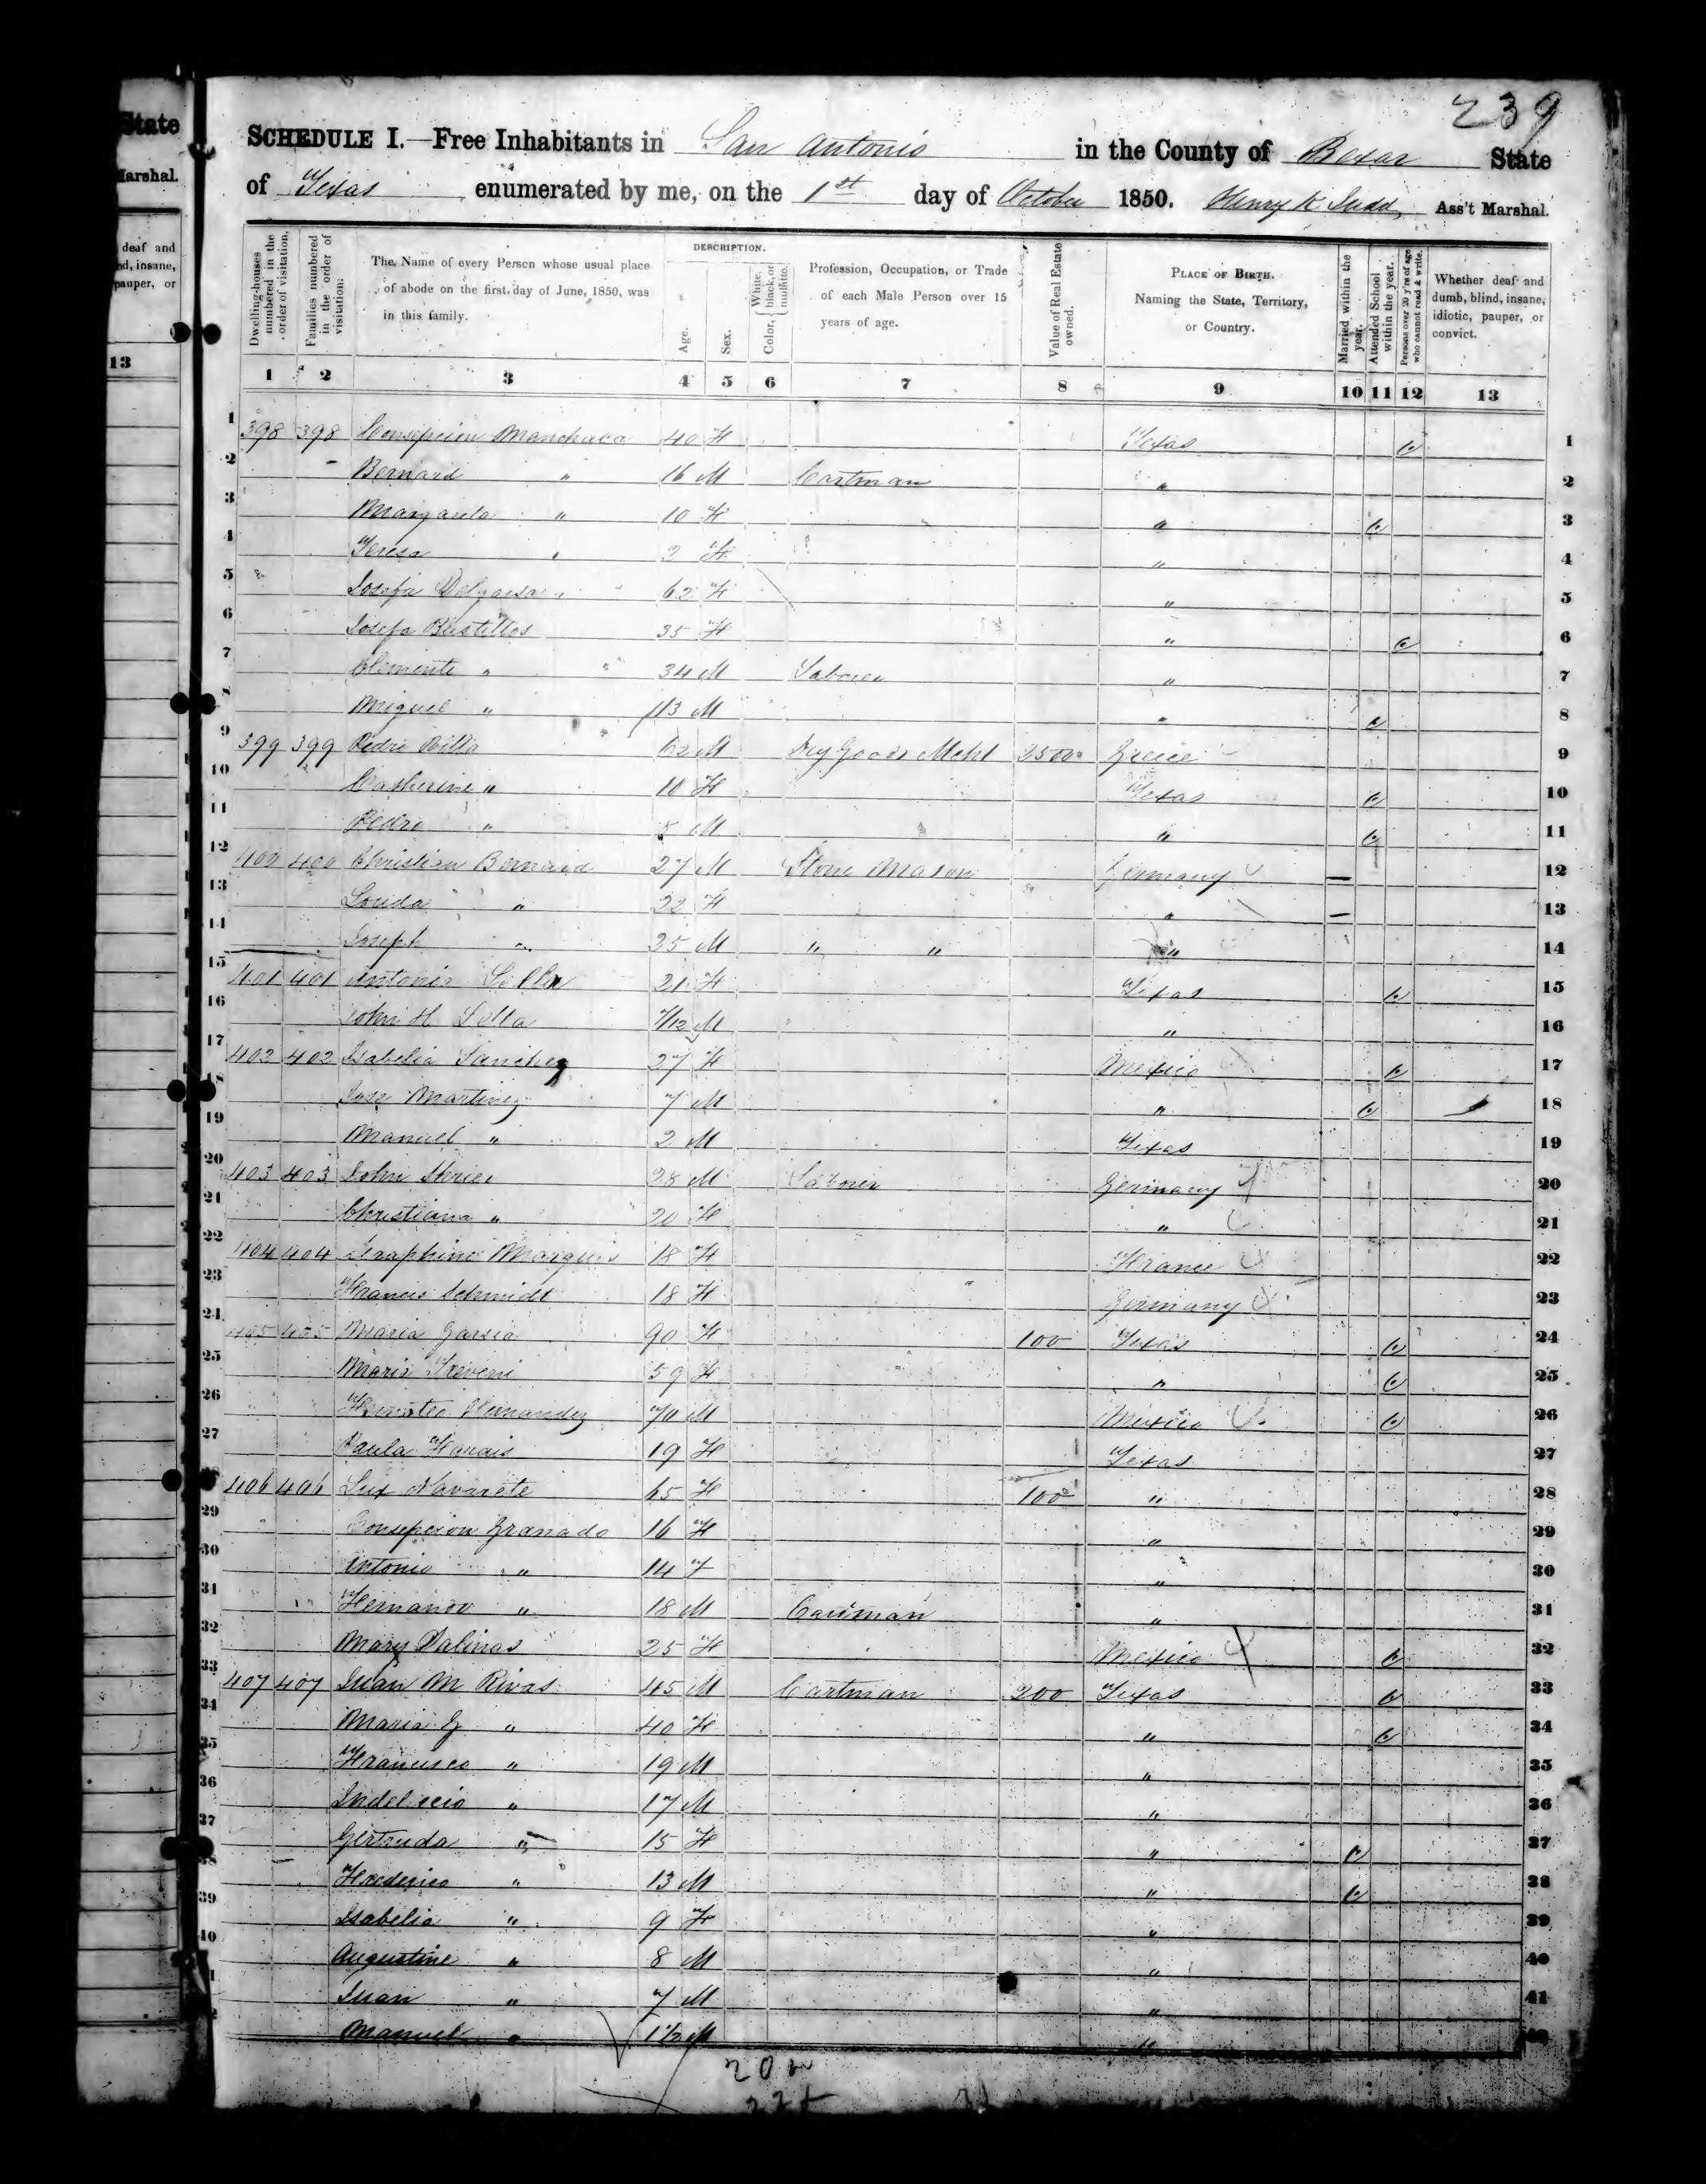 239
SCHEDULE I.—Free Inhabitants in San Antonio in the County of Bexar State
of Texas enumerated by me, on the 1st day of October 1850. Henry K. Judd, Ass't Marshal.
State
Marshal.
deaf and
nd, insane,
pauper, or
13
Dwelling-houses numbered in the order of visitation.
Families numbered in the order of visitation.
The Name of every Person whose usual place of abode on the first day of June, 1850, was in this family.
DESCRIPTION.
Age.
Sex.
Color, { White, black, or mulatto.
Profession, Occupation, or Trade of each Male Person over 15 years of age.
Value of Real Estate owned.
PLACE OF BIRTH. Naming the State, Territory, or Country.
Married within the year.
Attended School within the year.
Persons over 20 y'rs of age who cannot read & write.
Whether deaf and dumb, blind, insane, idiotic, pauper, or convict.
1 2 3 4 5 6 7 8 9 10 11 12 13
1 398 398 Consepcion Manchaca 40 F Texas 1
2 Bernard " 16 M Cartman " 2
3 Margareta " 10 F " 3
4 Teresa " 2 F " 4
5 Josefa 62 F " 5
6 Josefa Bustillos 35 F " 6
7 Clemente " 34 M Laborer " 7
8 Miguel " 13 M " 8
9 399 399 Pedro 62 M Dry Goods Mcht 2500 Greece 9
10 Catherine " 10 F Texas 10
11 Pedro " 8 M " 11
12 400 400 Christian Bernard 27 M Stone Mason Germany 12
13 " 22 F " 13
14 Joseph " 25 M " " " 14
15 401 401 Antonia 21 F Texas 15
16 John H 7/12 M " 16
17 402 402 Isabelia Sanchez 27 F Mexico 17
18 Jose Martinez 7 M " 18
19 Manuel " 2 M Texas 19
20 403 403 John 28 M Laborer Germany 20
21 Christiana " 20 F " 21
22 404 404 Seraphine Marquis 18 F France 22
23 Francis Schmidt 18 F Germany 23
24 405 405 Maria Garsia 90 F 100 Texas 24
25 Maria 59 F " 25
26 Hernandez 70 M Mexico 26
27 Paula 19 F Texas 27
28 406 406 Lux Navarete 65 F 100 " 28
29 Consepcion Granado 16 F " 29
30 Antonio " 14 F " 30
31 Hernando " 18 M Cartman " 31
32 Mary Salinas 25 F Mexico 32
33 407 407 Juan M Rivas 45 M Cartman 200 Texas 33
34 Maria G " 40 F " 34
35 Francisco " 19 M " 35
36 Indelecio " 17 M " 36
37 Gertruda " 15 F " 37
38 Frederico " 13 M " 38
39 Isabelia " 9 F " 39
40 Augustine " 8 M " 40
41 Juan " 7 M " 41
Manuel " 1 1/2 M "